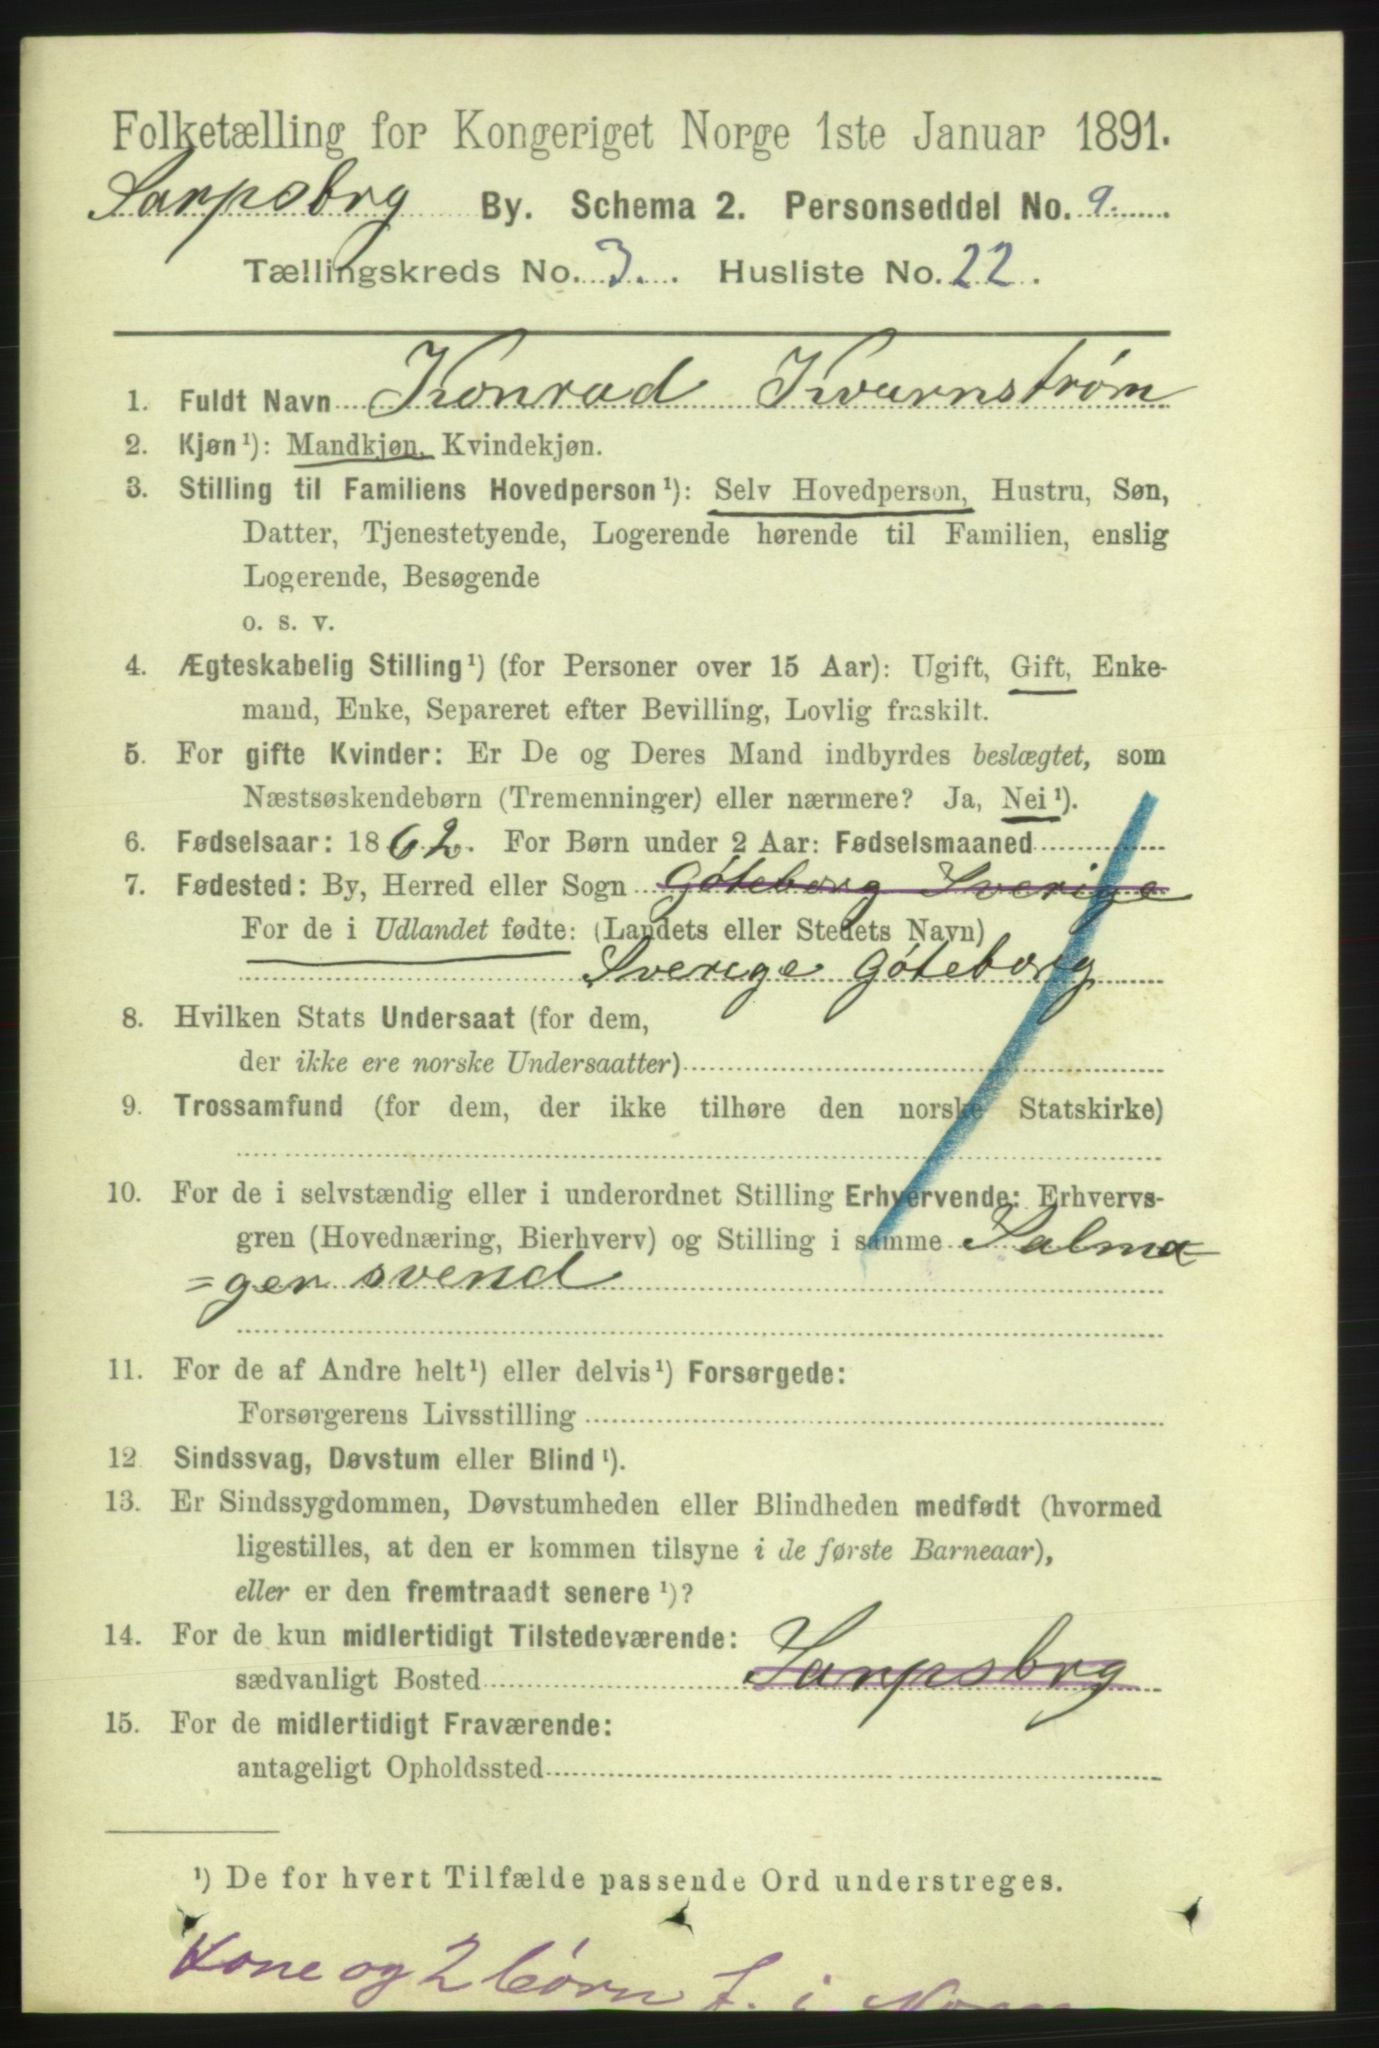 Folketælling for Kongeriget Norge 1ste Januar 1891.
Sarpsbrg By. Schema 2. Personseddel No. 9
Tællingskreds No. 3. Husliste No. 22.
1. Fuldt Navn Konrad Kvarnstrøm
2. Kjøn¹): Mandkjøn, Kvindekjøn.
3. Stilling til Familiens Hovedperson¹): Selv Hovedperson, Hustru, Søn,
Datter, Tjenestetyende, Logerende hørende til Familien, enslig
Logerende, Besøgende
o. s. v.
4. Ægteskabelig Stilling¹) (for Personer over 15 Aar): Ugift, Gift, Enke-
mand, Enke, Separeret efter Bevilling, Lovlig fraskilt.
5. For gifte Kvinder: Er De og Deres Mand indbyrdes beslægtet, som
Næstsøskendebørn (Tremenninger) eller nærmere? Ja, Nei¹).
6. Fødselsaar: 1862. For Børn under 2 Aar: Fødselsmaaned
7. Fødested: By, Herred eller Sogn Göteborg Sverige
For de i Udlandet fødte: (Landets eller Stedets Navn)
Sverige Göteborg
8. Hvilken Stats Undersaat (for dem,
der ikke ere norske Undersaatter)
9. Trossamfund (for dem, der ikke tilhøre den norske Statskirke)
10. For de i selvstændig eller i underordnet Stilling Erhvervende: Erhvervs-
gren (Hovednæring, Bierhverv) og Stilling i samme Salma
=ger svend
11. For de af Andre helt¹) eller delvis¹) Forsørgede:
Forsørgerens Livsstilling
12 Sindssvag, Døvstum eller Blind¹).
13. Er Sindssygdommen, Døvstumheden eller Blindheden medfødt (hvormed
ligestilles, at den er kommen tilsyne i de første Barneaar),
eller er den fremtraadt senere¹)?
14. For de kun midlertidigt Tilstedeværende:
sædvanligt Bosted Sarpsbrg
15. For de midlertidigt Fraværende:
antageligt Opholdssted
¹) De for hvert Tilfælde passende Ord understreges.
Kone og 2 börn f. i